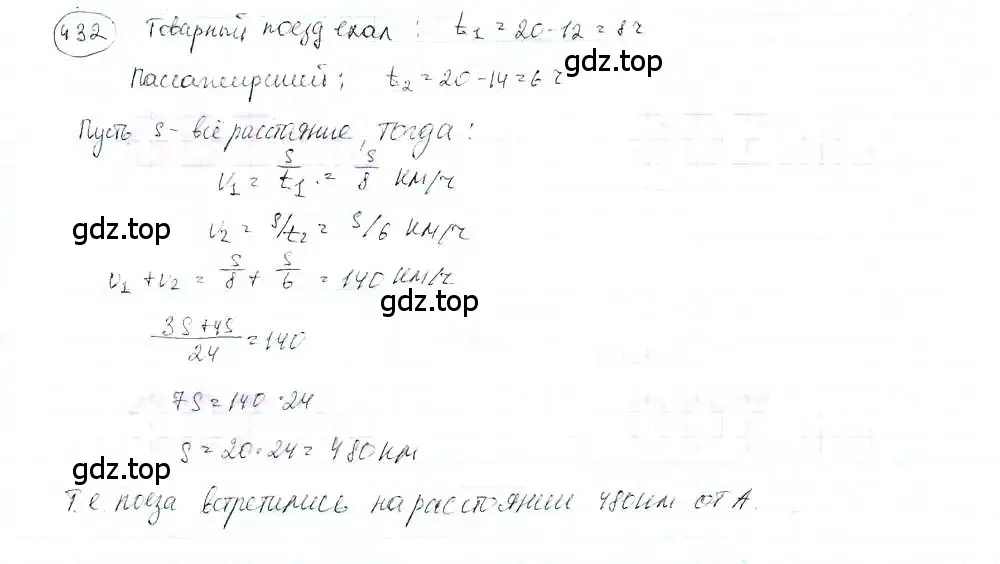 432 Товарный поезд ехал : t₁ = 20-12 = 8 ч
gdz.top
Пассажирский; t₂ = 20-14 = 6 ч
Пусть S - всё расстояние, тогда:
v₁ = S/t₁ = S/8 км/ч
gdz.top
v₂ = S/t₂ = S/6 км/ч
v₁ + v₂ = S/8 + S/6 = 140 км/ч
gdz.top
3S+4S/24 = 140
7S = 140 · 24
S = 20·24 = 480 км
gdz.top
Т.е. поезда встретились на расстоянии 480 км от А.